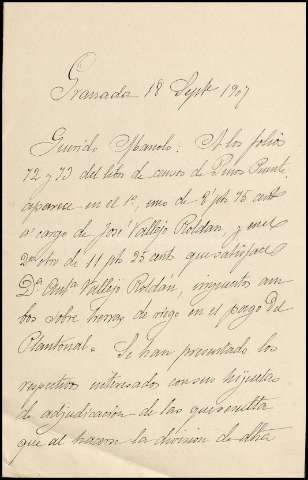 Granada 18 Septe 1907
Querido Manolo: A los folios
72 y 73 del libro de censos de Pinos Puente,
aparece en el 1º, uno de 8 pts 75 cents
a cargo de José Vallejo Roldan, y en el
2º otro de 11 pts 25 cents que satisface
Dª Antª Vallejo Roldán, impuestos am
bos sobre tierras de riego en el pago del
Plantonal. Se han presentado los
respectivos interesados con sus hijuelas
de adjudicación de las que resulta
que al hacerse la division de